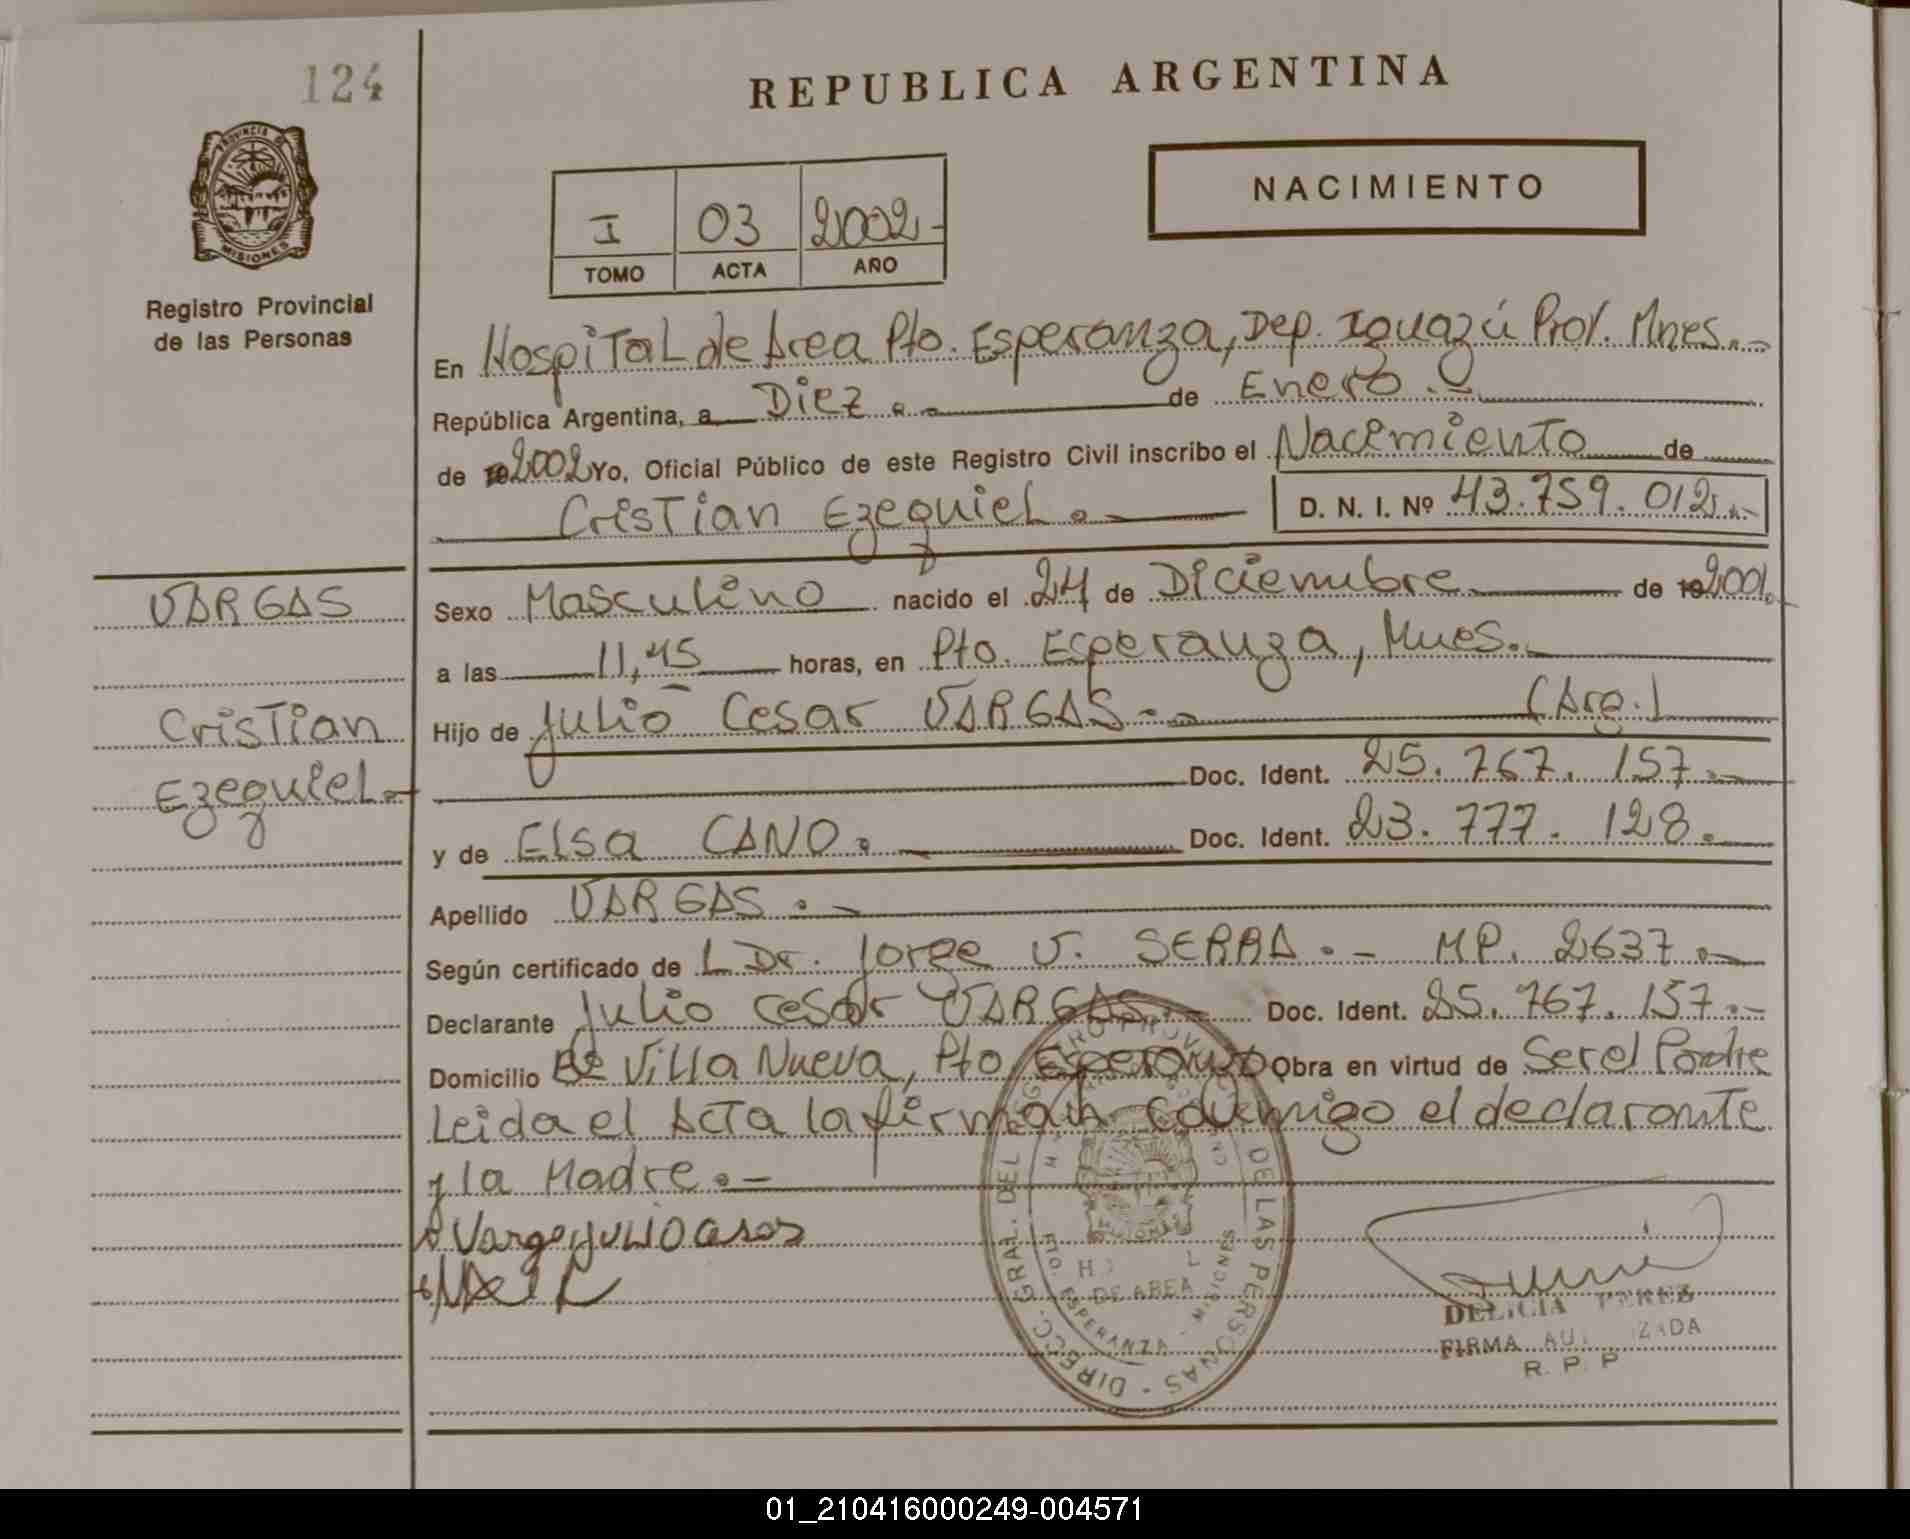 124
REPUBLICA ARGENTINA
PROVINCIA DE
MISIONES
NACIMIENTO
I 03 2002-
TOMO ACTA AÑO
Registro Provincial
de las Personas
En Hospital de Area Pto. Esperanza, Dep. Iguazú Prov. Mnes.-
República Argentina, a Diez.- de Enero.-
de 192002 Yo, Oficial Público de este Registro Civil inscribo el Nacimiento de
Cristian Ezequiel.- D. N. I. Nº 43.759.012.-
VARGAS
Cristian
Ezequiel.-
Sexo Masculino nacido el 24 de Diciembre de 192001.-
a las 11,45 horas, en Pto. Esperanza, Mnes.-
Hijo de Julio Cesar VARGAS.- (Arg.)
Doc. Ident. 25.767.157.-
y de Elsa CANO.- Doc. Ident. 23.777.128.-
Apellido VARGAS.-
Según certificado de L Dr. Jorge V. SERRA.- MP. 2637.-
Declarante Julio Cesar VARGAS.- Doc. Ident. 25.767.157.-
Domicilio Bº Villa Nueva, Pto Esperanza Obra en virtud de Ser el Padre
Leida el Acta la firman conmigo el declarante
y la Madre.-
DIRECC. GRAL. DEL REGISTRO PROVINCIAL DE LAS PERSONAS
DE AREA
PTO. ESPERANZA - MISIONES
DELICIA PEREZ
FIRMA AUTORIZADA
R. P. P
01_210416000249-004571